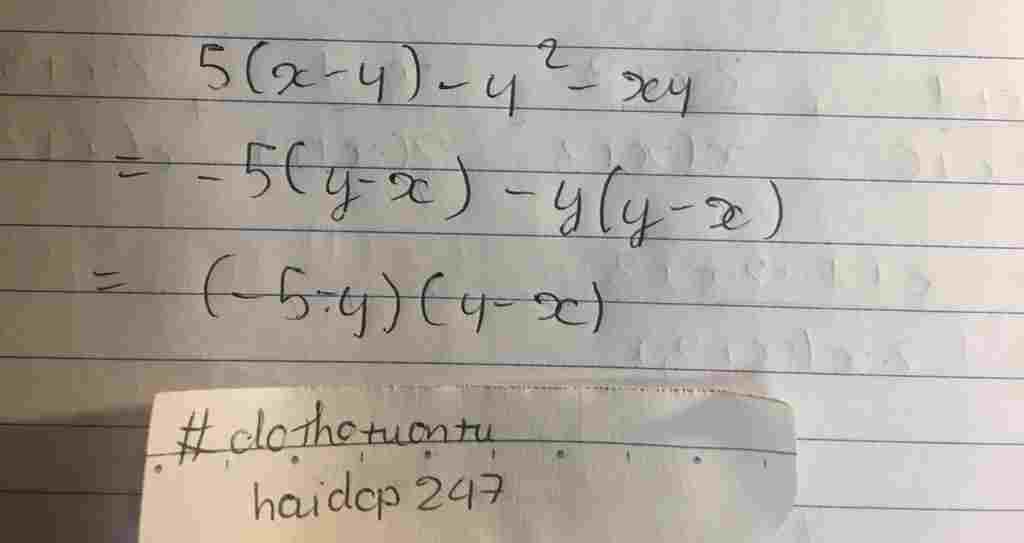 5(x-y)-y²-xy
= -5(y-x)-y(y-x)
= (-5-y)(y-x)
#clothotuontu
haidcp 247